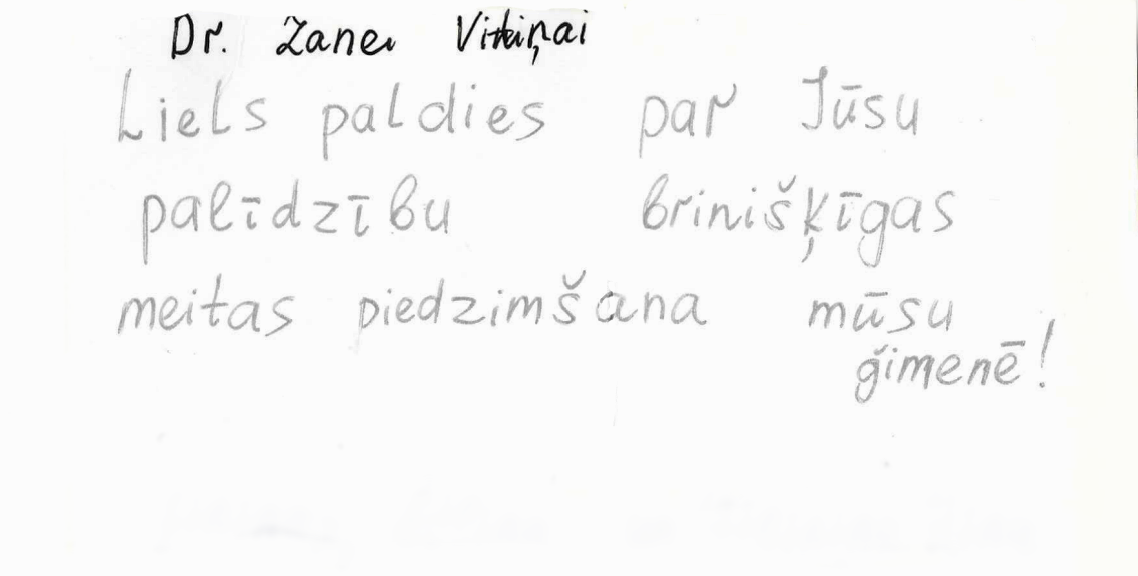 Dr. Zanei Vitiņai
Liels paldies par Jūsu
palīdzību brinišķīgas
meitas piedzimšana mūsu
ģimenē!